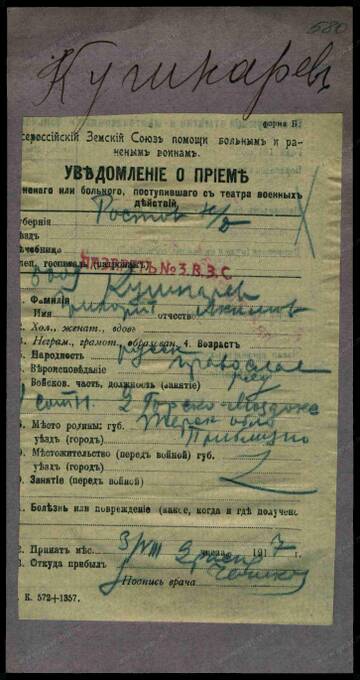 580
Кушнарев
форма
сероссійскій Земскій Союзъ помощи больнымъ и ра-
неныมъ воинамъ.
УВѢДОМЛЕНІЕ О ПРІЕМѢ
неного или больного, поступившаго съ театра военныхъ
дѣйствій.
Губернія Ростовъ н/Д
ѣздъ
ѣчебница
ЛАЗАРЕТЪ № 3. В.З.С.
1. Фамилія Кушнарев
Имя Григорій отчество
2. Хол., женат., вдовъ
3. Неграм., грамот., образован. 4. Возрастъ
5. Народность русск
6. Вѣроисповѣданіе православ
7. Войсков. часть, должность (занятіе) ряд
сотн. 2 Горско-Моздокс
8. Мѣсто родины: губ. Терск обл
уѣздъ (городъ)
9. Мѣстожительство (передъ войной) губ.
уѣздъ (городъ)
0. Занятіе (передъ войной)
1. Болѣзнь или поврежденіе (какое, когда и гдѣ получено
2. Принятъ мѣс. 3/VIII 1917 г.
3. Откуда прибылъ
Подпись врача
К. 572+1357.